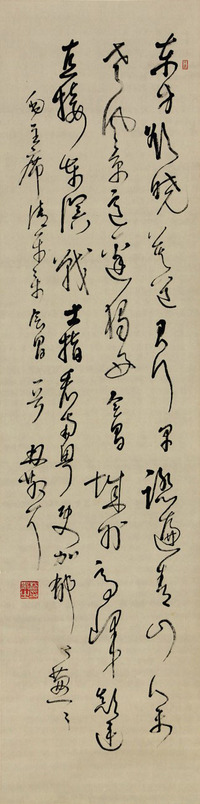 东方欲晓莫道君行早踏遍青山人未
老风景这边独好会昌城外高峰颠连
直接东溟戰士指看南粤更加郁々葱々
毛主席清平乐会昌一首